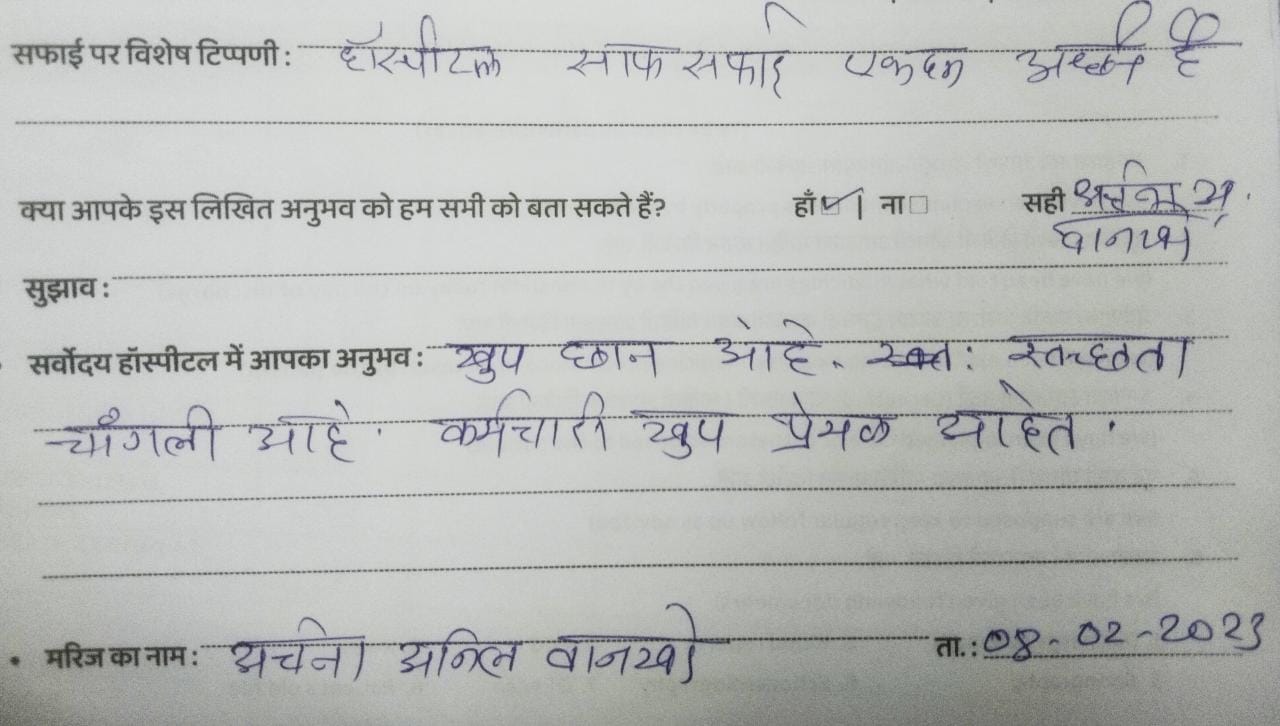 सफाई पर विशेष टिप्पणी : हॉस्पीटल साफ सफाई एकदम अच्छी है
क्या आपके इस लिखित अनुभव को हम सभी को बता सकते हैं? हाँ | ना सही अर्चना अ.
वानखे
सुझाव :
सर्वोदय हॉस्पीटल में आपका अनुभव : खुप छान आहे. स्वतः स्वच्छता
चाँगली आहे. कर्मचारी खुप प्रेमळ आहेत.
• मरिज का नाम : अर्चना अनिल वानखे ता.: 08-02-2023